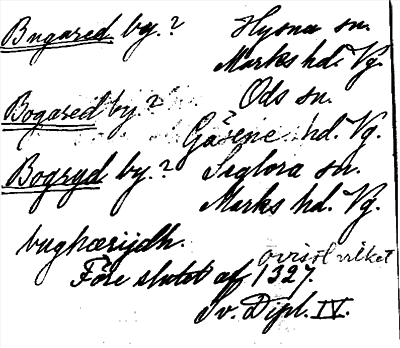 Bugared by.? Hyssna sn.
Marks hd. Vg.
Bogared by.? Ods sn.
Gäsene hd. Vg.
Bogryd by.? Seglora sn.
Marks hd. Vg.
bughærijdh.
ovisst vilket
Före slutet af 1327.
Sv. Dipl. IV.